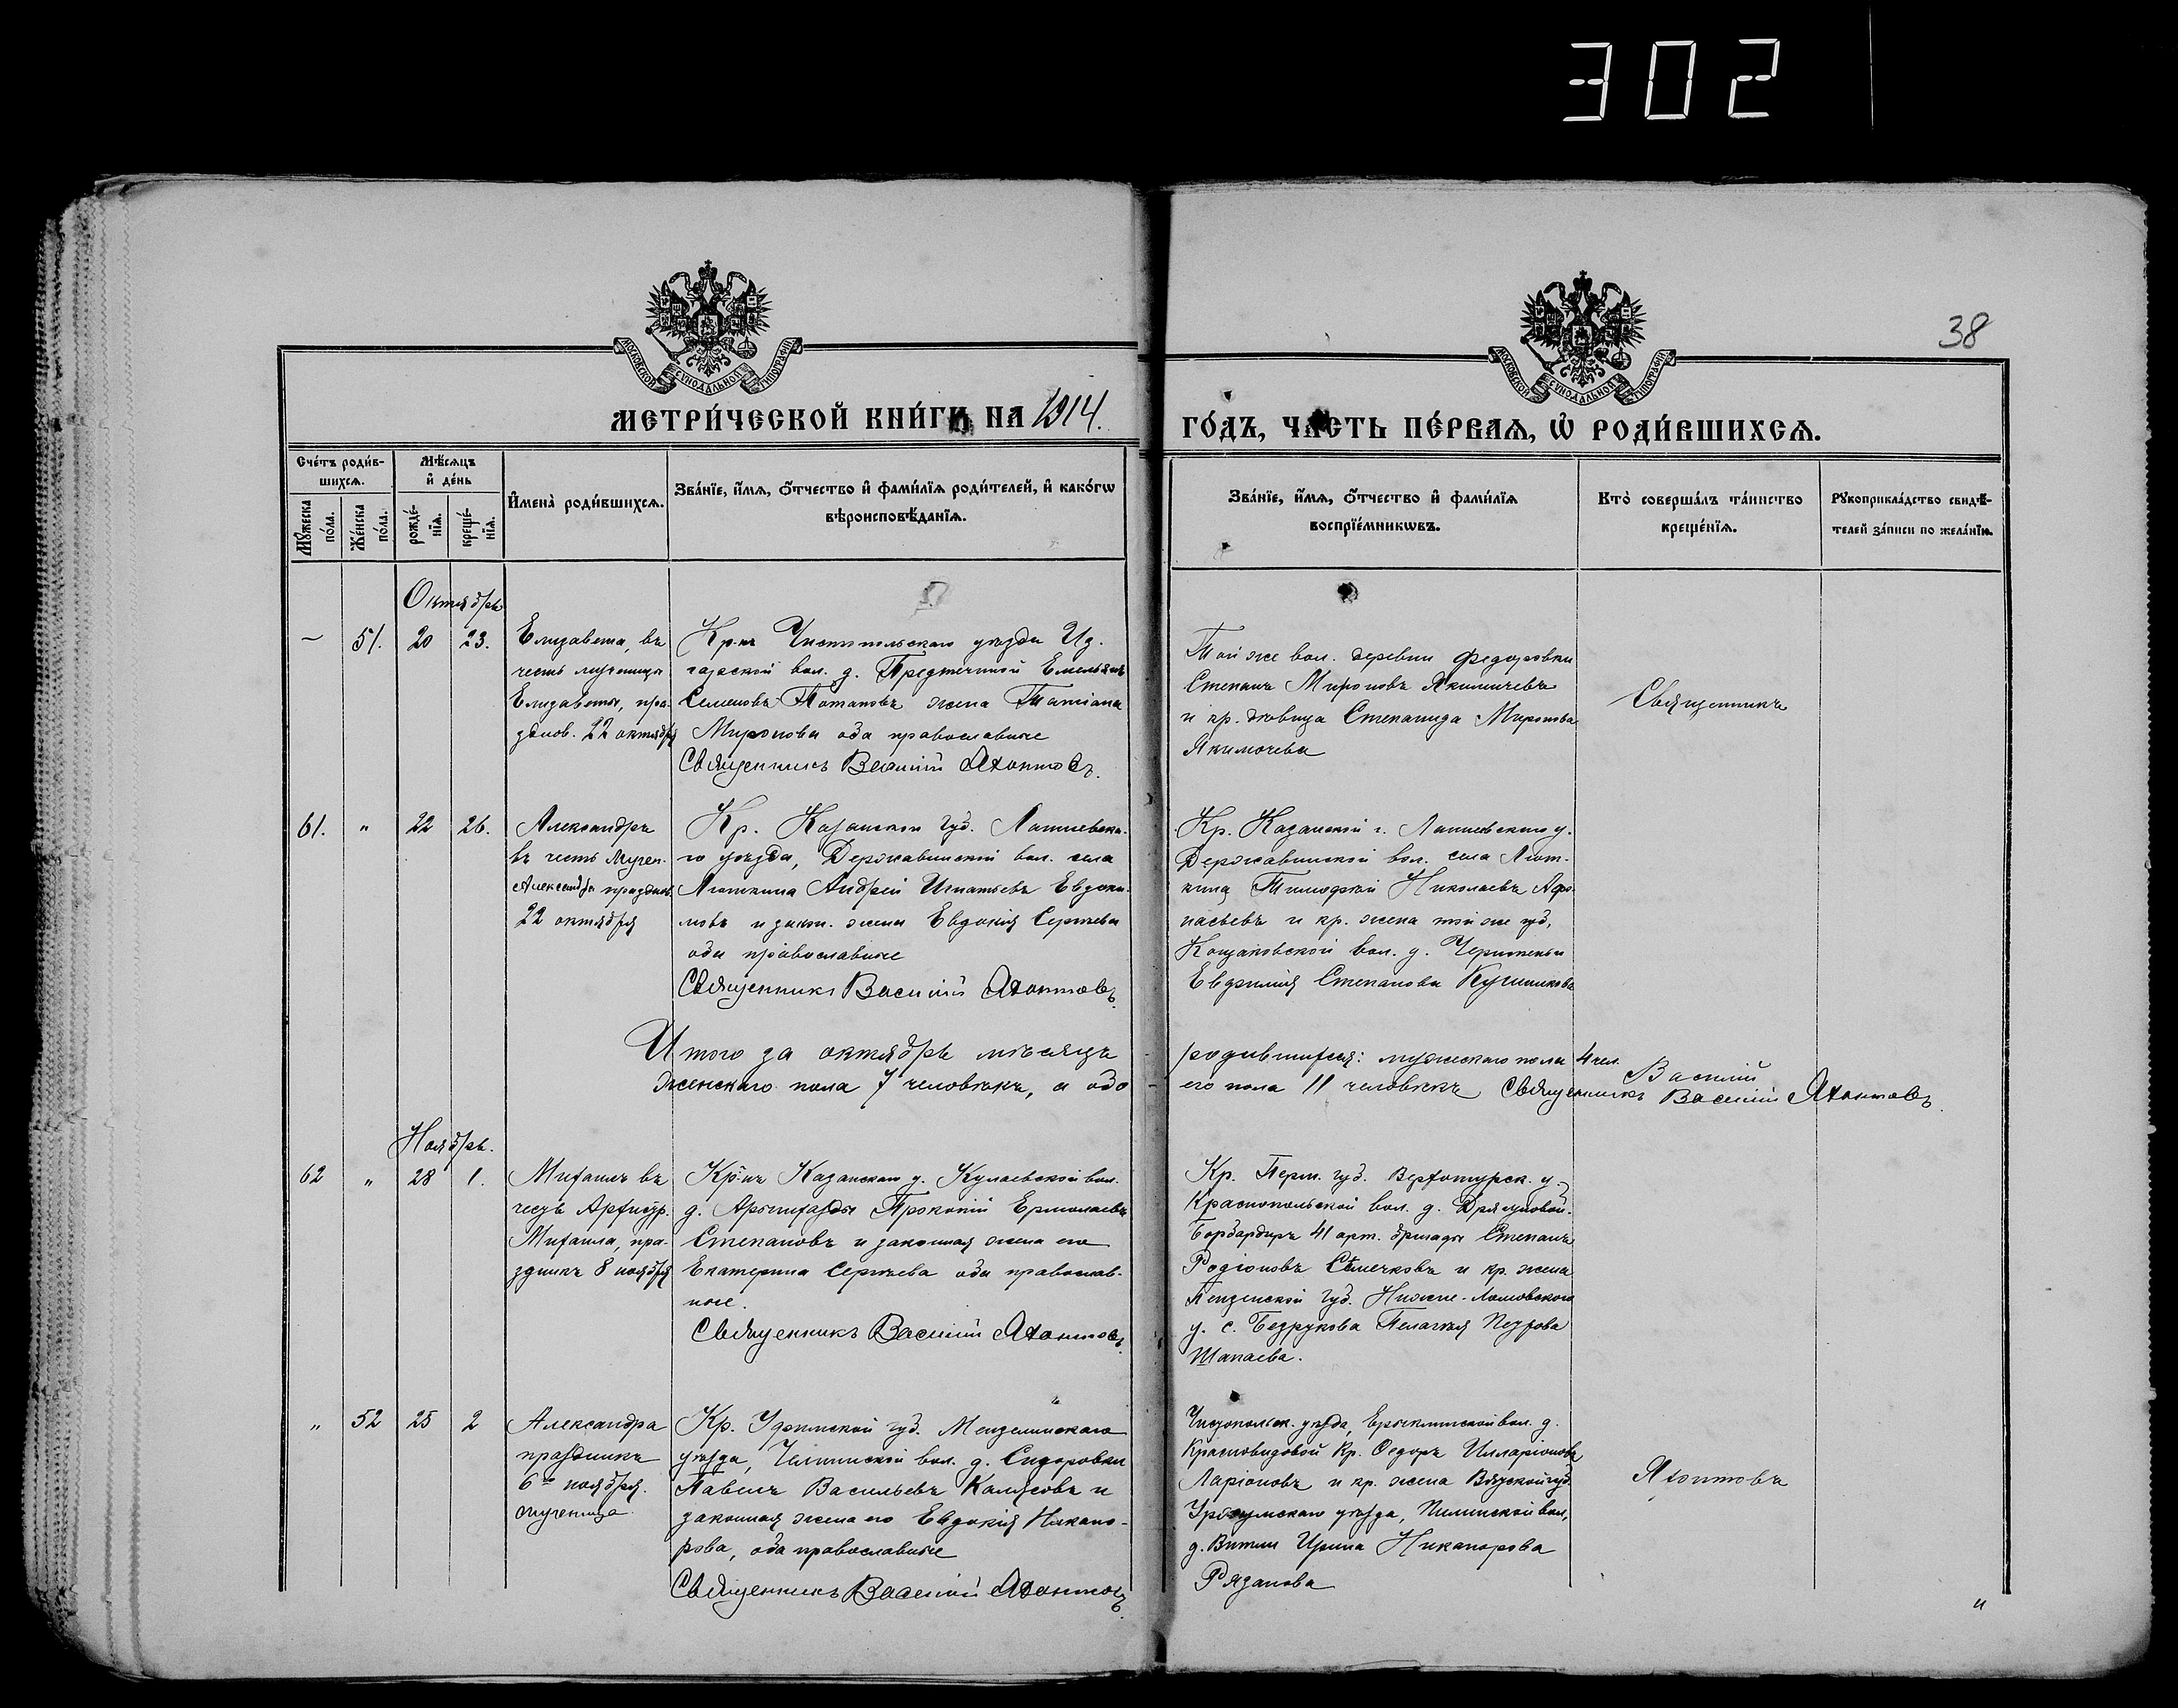 302
38
МОСКОВСКОЙ СѴНОДАЛЬНОЙ ТИПОГРАФІИ
МОСКОВСКОЙ СѴНОДАЛЬНОЙ ТИПОГРАФІИ
МЕТРИ́ЧЕСКОЙ КНИ́ГИ НА 1914.
ГО́ДЪ, ЧАСТЬ ПЕ́РВАѦ, Ѡ҆ РОДИ́ВШИХСѦ.
Сче́тъ роди́в-
шихсѧ.
Мꙋ́жеска по́ла.
Же́нска по́ла.
Мѣ́сѧцъ
и҆ де́нь
рожде́-
нїѧ.
креще́-
нїѧ.
И҆мена̀ роди́вшихсѧ.
Зва́нїе, и҆́мѧ, ѻ҆́тчество и҆ фами́лїѧ роди́телей, и҆ како́гѡ
вѣроисповѣ́данїѧ.
Зва́нїе, и҆́мѧ, ѻ҆́тчество и҆ фами́лїѧ
воспрїе́мникѡвъ.
Кто̀ соверша́лъ та́инство
креще́нїѧ.
Рꙋкоприкла́дство свидѣ́-
телей за́писи по жела́нїю.
Октябрь
– 51. 20 23.
Елизавета, въ
честь мученицы
Елизаветы, пра
зднов. 22 октября
Кр-нъ Чистопольскаго уѣзда
вол. д. Предтечиной Емельянъ
Семеновъ Потаповъ жена Татіана
Миронова оба православные
Священникъ Василій Яхонтовъ.
Той же вол. деревни Федоровки
Степанъ Мироновъ Якимычевъ
и кр. дѣвица Степанида Миронова
Якимычева
Священникъ
61. " 22 26.
Александръ
въ честь Мучен.
Александра празднов.
22 октября
Кр. Казанской губ. Лаишевска-
го уѣзда, Державинской вол. села
Люткина Андрей Игнатьевъ Евдоки-
мовъ и закон. жена Евдокія Сергѣева
оба православные
Священникъ Василій Яхонтовъ.
Кр. Казанской г. Лаишевскаго у.
Державинской вол. села Лют-
кина Тимофей Николаевъ Афа
насьевъ и кр. жена той же губ.
вол. д.
Евфимія Степанова
Итого за октябрь мѣсяцъ
родившихся: мужескаго пола 4 чел.
женскаго пола 7 человѣкъ, а обо
его пола 11 человѣкъ Священникъ Василій Яхонтовъ.
Василій
Ноябрь.
62 " 28 1.
Михаилъ въ
честь Архистр.
Михаила, пра-
здникъ 8 ноября
Кр-нъ Казанскаго у. Кулаевской вол.
д. Прокопій Ермолаевъ
Степановъ и законная жена его
Екатерина Сергѣева оба православ-
ные.
Священникъ Василій Яхонтовъ.
Кр. Перм. губ. Верхотурск. у.
Краснопольской вол. д.
Бомбардиръ 41 арт. бригады Степанъ
Родіоновъ Семечковъ и кр. жена
Пензенской губ. Нижне-Ломовского
у. с. Пелагія Петрова
Шапаева.
" 52 25 2
Александра
праздникъ
6го ноября.
мученица
Кр. Уфимской губ. Мензелинскаго
уѣзда, вол. д. Сидоровки
Павелъ Васильевъ и
законная жена его Евдокія Никано-
рова, оба православные
Священникъ Василій Яхонтовъ.
Чистопольск. уѣзда, Ерыклинской вол. д.
Красновидовой Кр. Ѳедоръ Илларіоновъ
Ларіоновъ и кр. жена Вятской губ.
Уржумскаго уѣзда, Пилинской вол,
д. Ирина Никанорова
Рязанова
Яхонтовъ